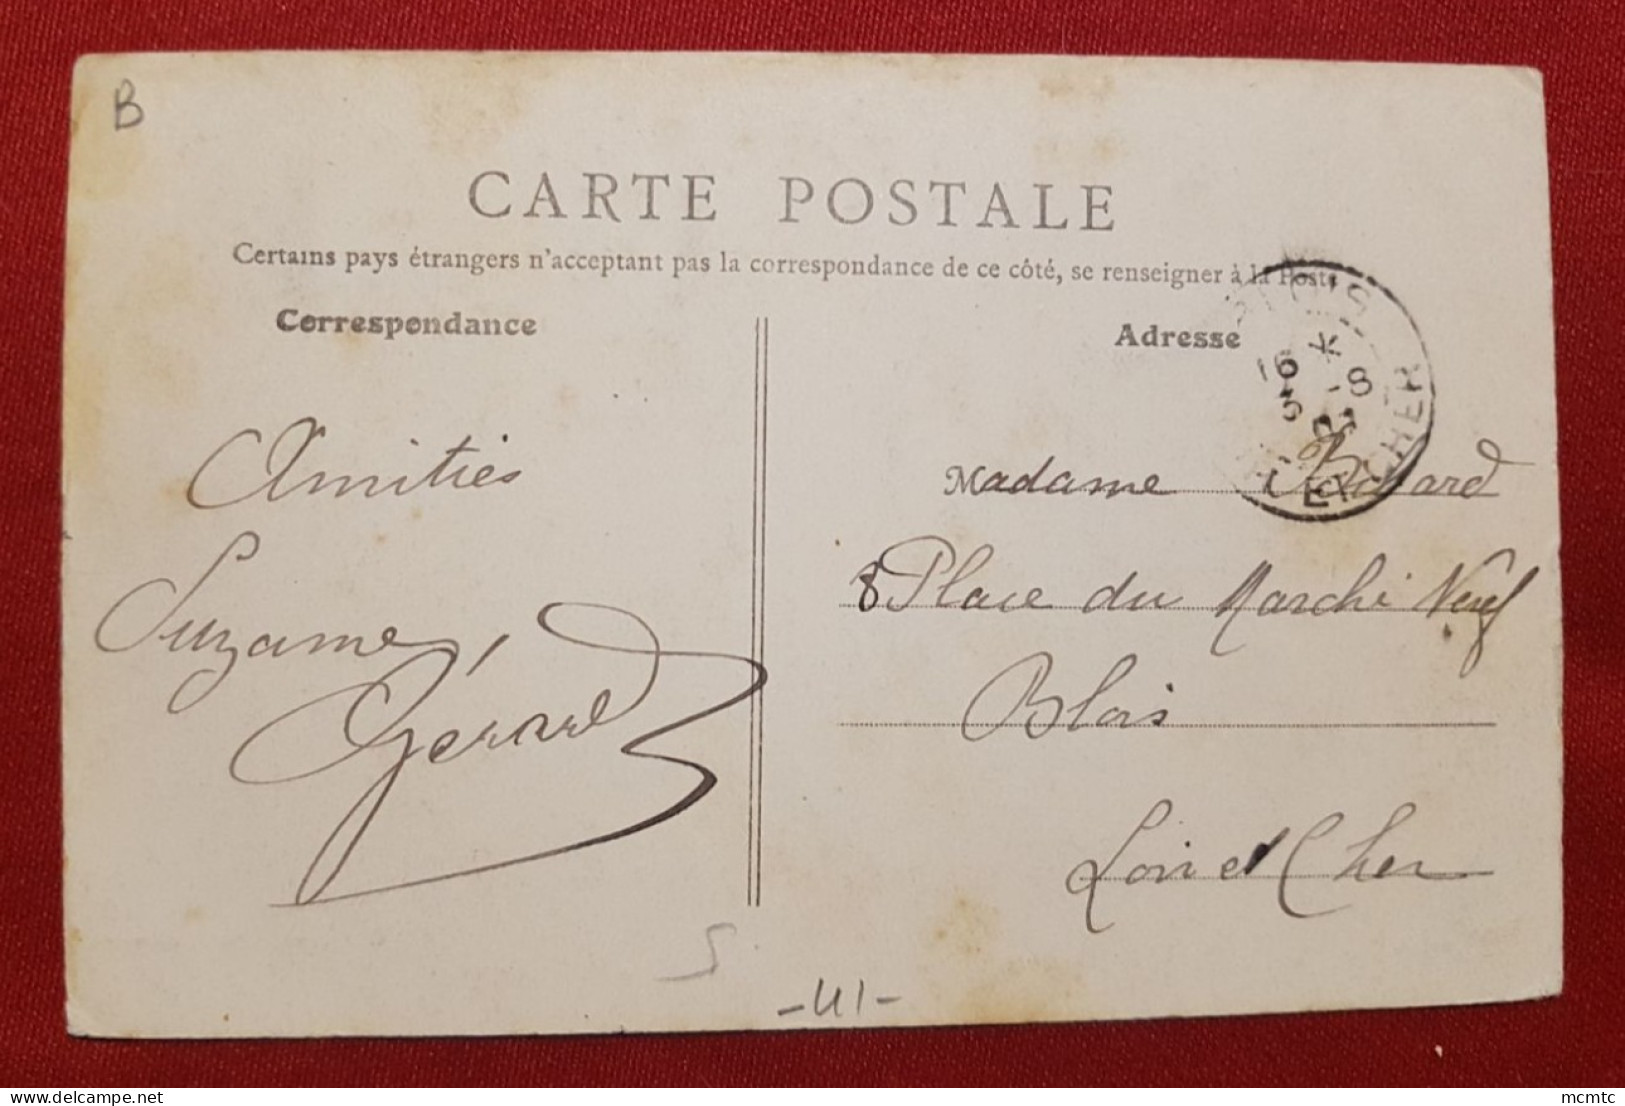 B
CARTE POSTALE
Certains pays étrangers n'acceptant pas la correspondance de ce côté, se renseigner à la Poste
Correspondance
Adresse
16 * 8
5
ET CHER
Amitiés
Suzanne
Gérard
Madame
8 Place du Marché Neuf
Blois
Loir et Cher
5
-41-
delcampe.net
mcmtc